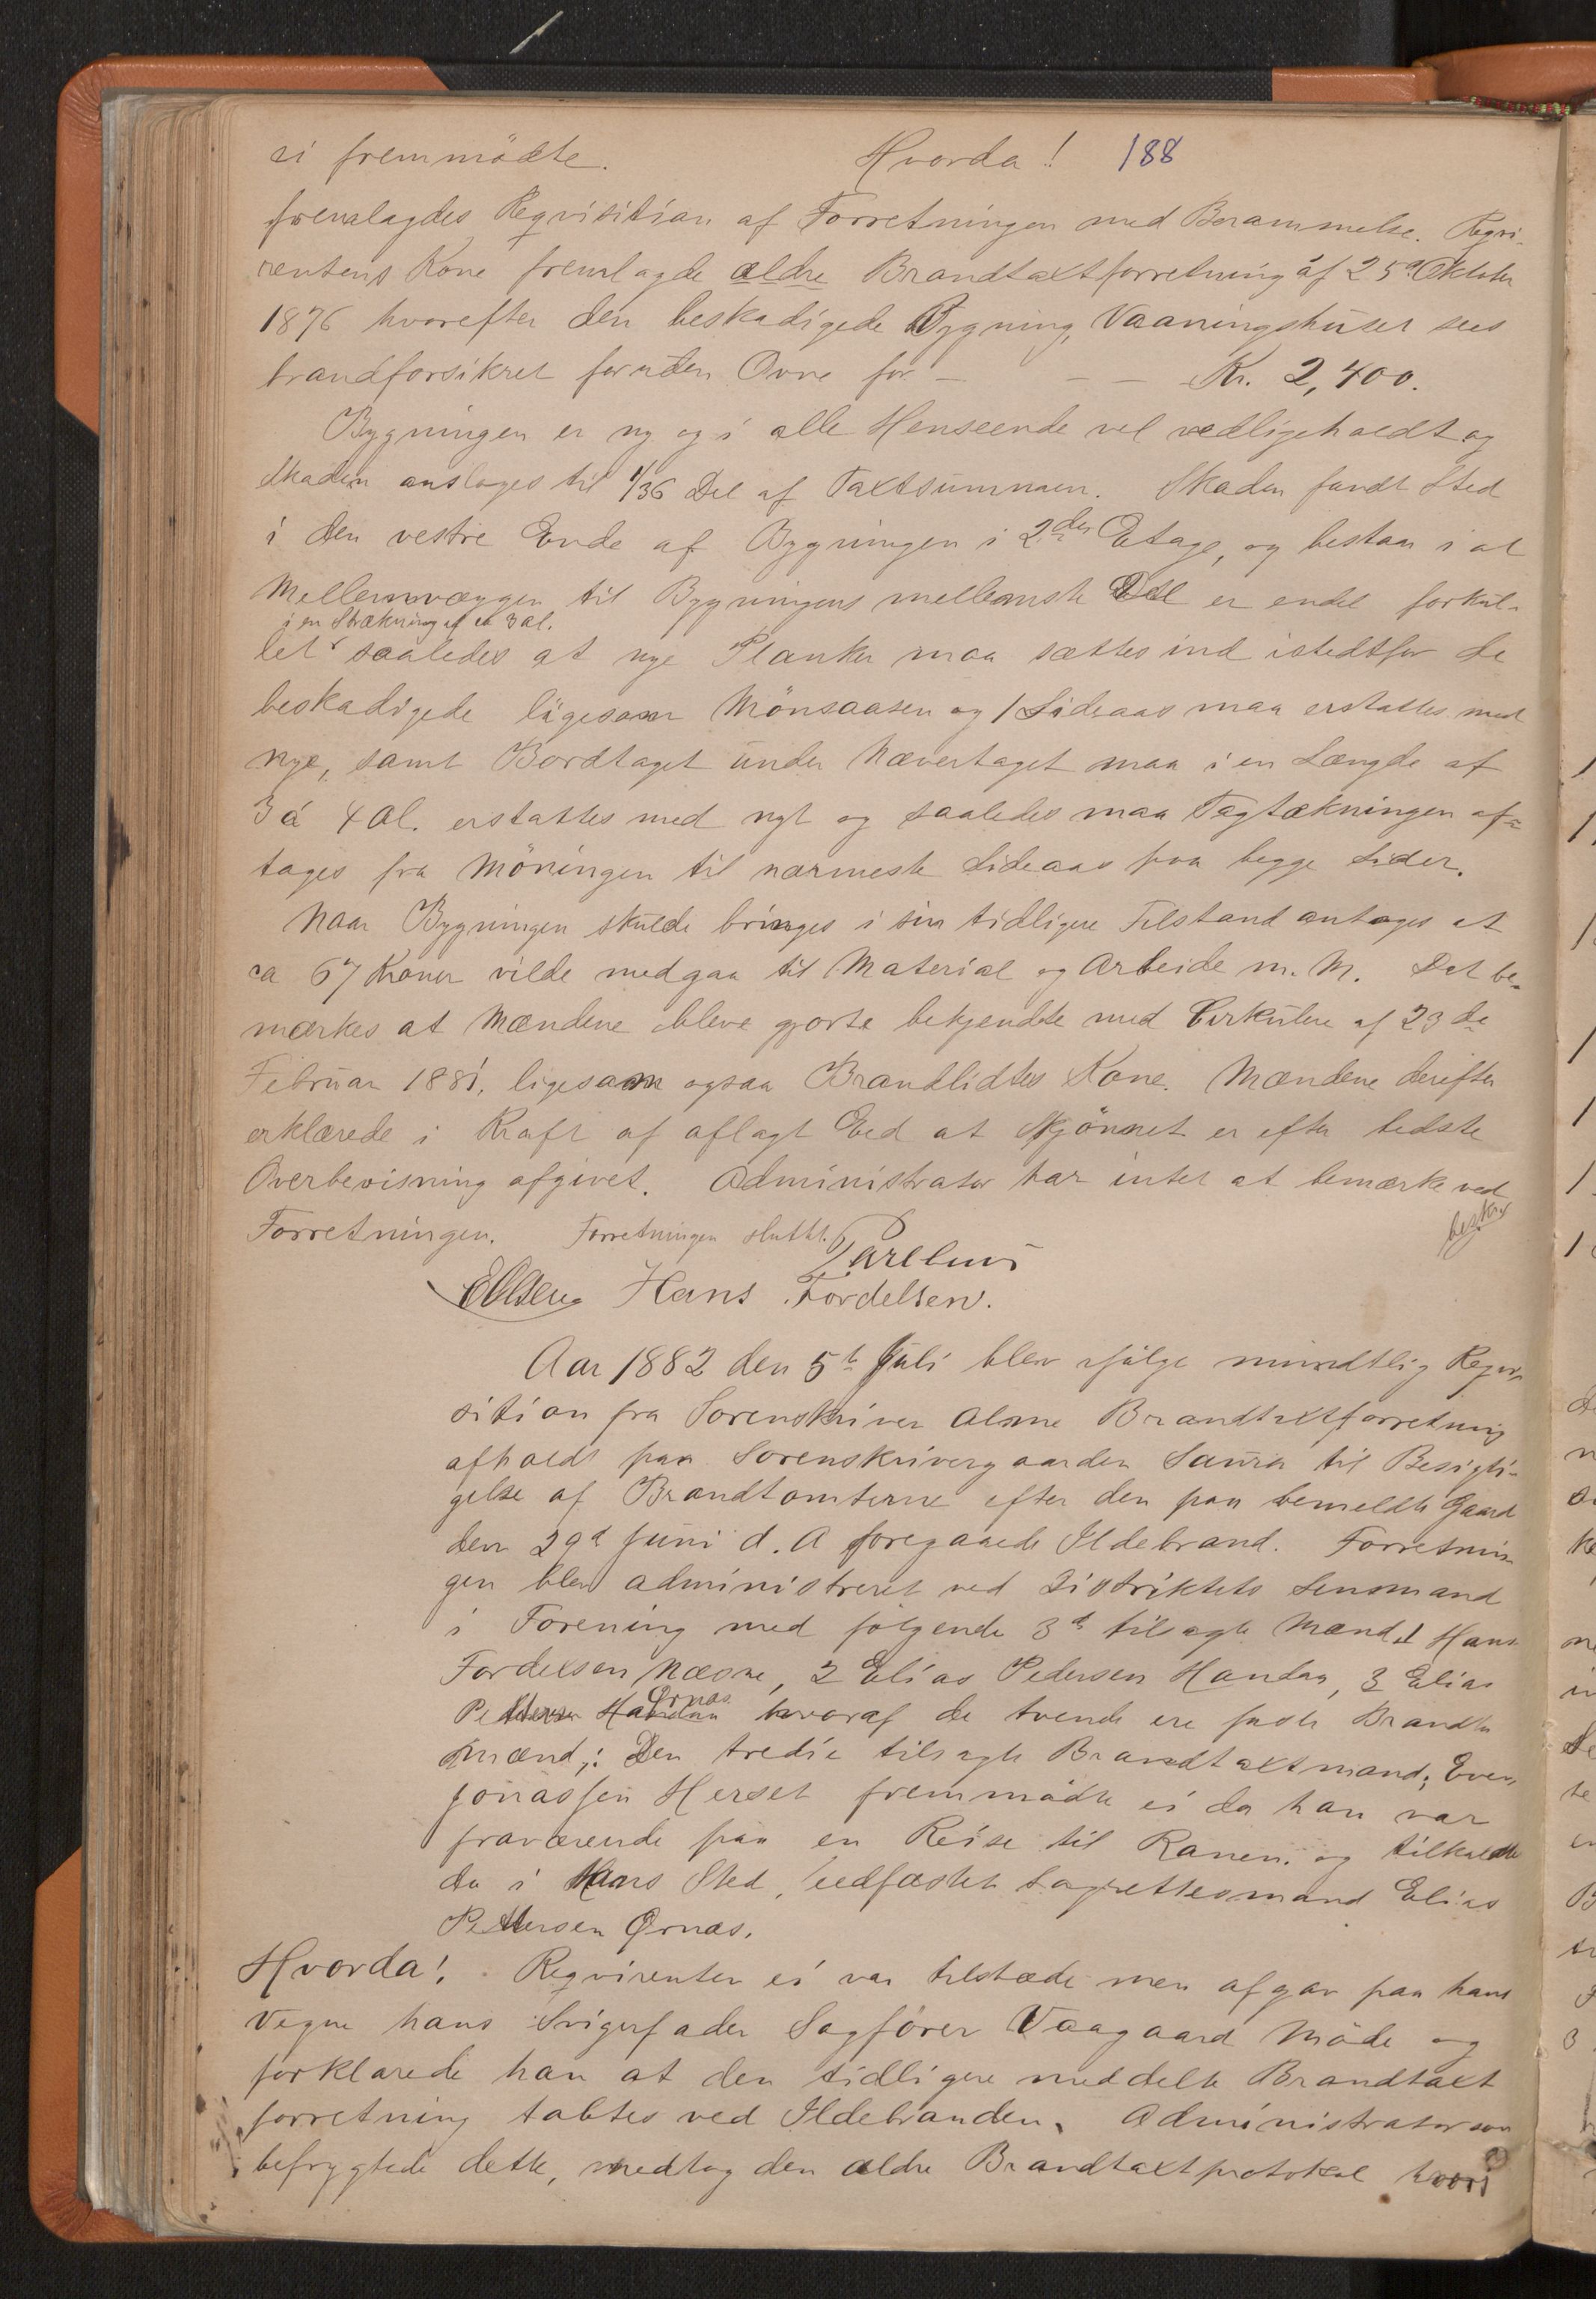 ei fremmödte. Hvorda! 188
fremlagdes Reqvisition af Forretningen med Berammelse. Reqvi-
rentens Kone fremlagde ældre Brandtaxtforretning af 25d Oktober
1876 hvorefter den beskadigede Bygning, Vaaningshuset sees
brandforsikret foruden Ovne for - - - Kr. 2,400.
Bygningen er ny og i alle Henseende vel vedligeholdt og
Skaden ansloges til 1/36 Del af Taxtsummen. Skaden fandt Sted
i den vestre Ende af Bygningen i 2den Etage, og bestaar i at
Mellemvæggen til Bygningens mellemste Del er endel forkul-
i en Strækning af ca 3 al.
let saaledes at nye Planker maa sættes ind istedtfor de
beskadigede ligesom Mönsaasen og 1 Sideaas maa erstattes med
nye, samt Bordtaget under Nævertaget maa i en Længde af
3 á 4 Al. erstattes med nyt og saaledes maa Tagtækningen af-
tages fra Möningen til nærmeste Sideaas paa begge Sider.
Naar Bygningen skulde bringes i sin tidligere Tilstand antages at
ca 67 Kroner vilde medgaa til Material og Arbeide m. M. Det be-
mærkes at Mændene bleve gjorte bekjendte med Cirkulære af 23de
Februar 1881, ligesom ogsaa Brandlidtes Kone. Mændene derefter
erklærede i Kraft af aflagt Eed at Skjönnet er efter bedste
Overbevisning afgivet. Administrator har intet at bemærke ved
Forretningen. Forretningen sluttet.
Hans Tordelsen.
Aar 1882 den 5te Juli blev ifölge mundtlig Reqvi-
sition fra Sorenskriver Alme Brandtaxtforretning
afholdt paa Sorenskrivergaarden Saura til Besigti-
gelse af Brandtomterne efter den paa bemeldte Gaard
den 29d Juni d. A foregaaede Ildebrand. Forretnin-
gen blev administreret ved Distriktets Lensmand
i Forening med fölgende 3de tilsagte Mænd, 1 Hans
Tordelsen Næsne, 2 Elias Pedersen Handnæs, 3 Elias
Ørnæs
Pettersen hvoraf de tvende ere faste Brandt
mænd,: Den tredie tilsagte Brandtaxtmand; Even
Jonassen Herset fremmödte ei da han var
fraværende paa en Reise til Ranen. og tilkaldte
da i Hans Sted, eedfæstet Lagrettesmand Elias
Pettersen Ørnæs.
Hvorda!. Reqvirenten ei var tilstæde men afgav paa hans
Vegne hans Svigerfader Sagförer Vaagaard Möde og
forklarede han at den tidligere meddelte Brandtaxt
forretning tabtes ved Ildebranden. Administrator som
befrygtede dette, medtog den ældre Brandtaxtprotokol hvori